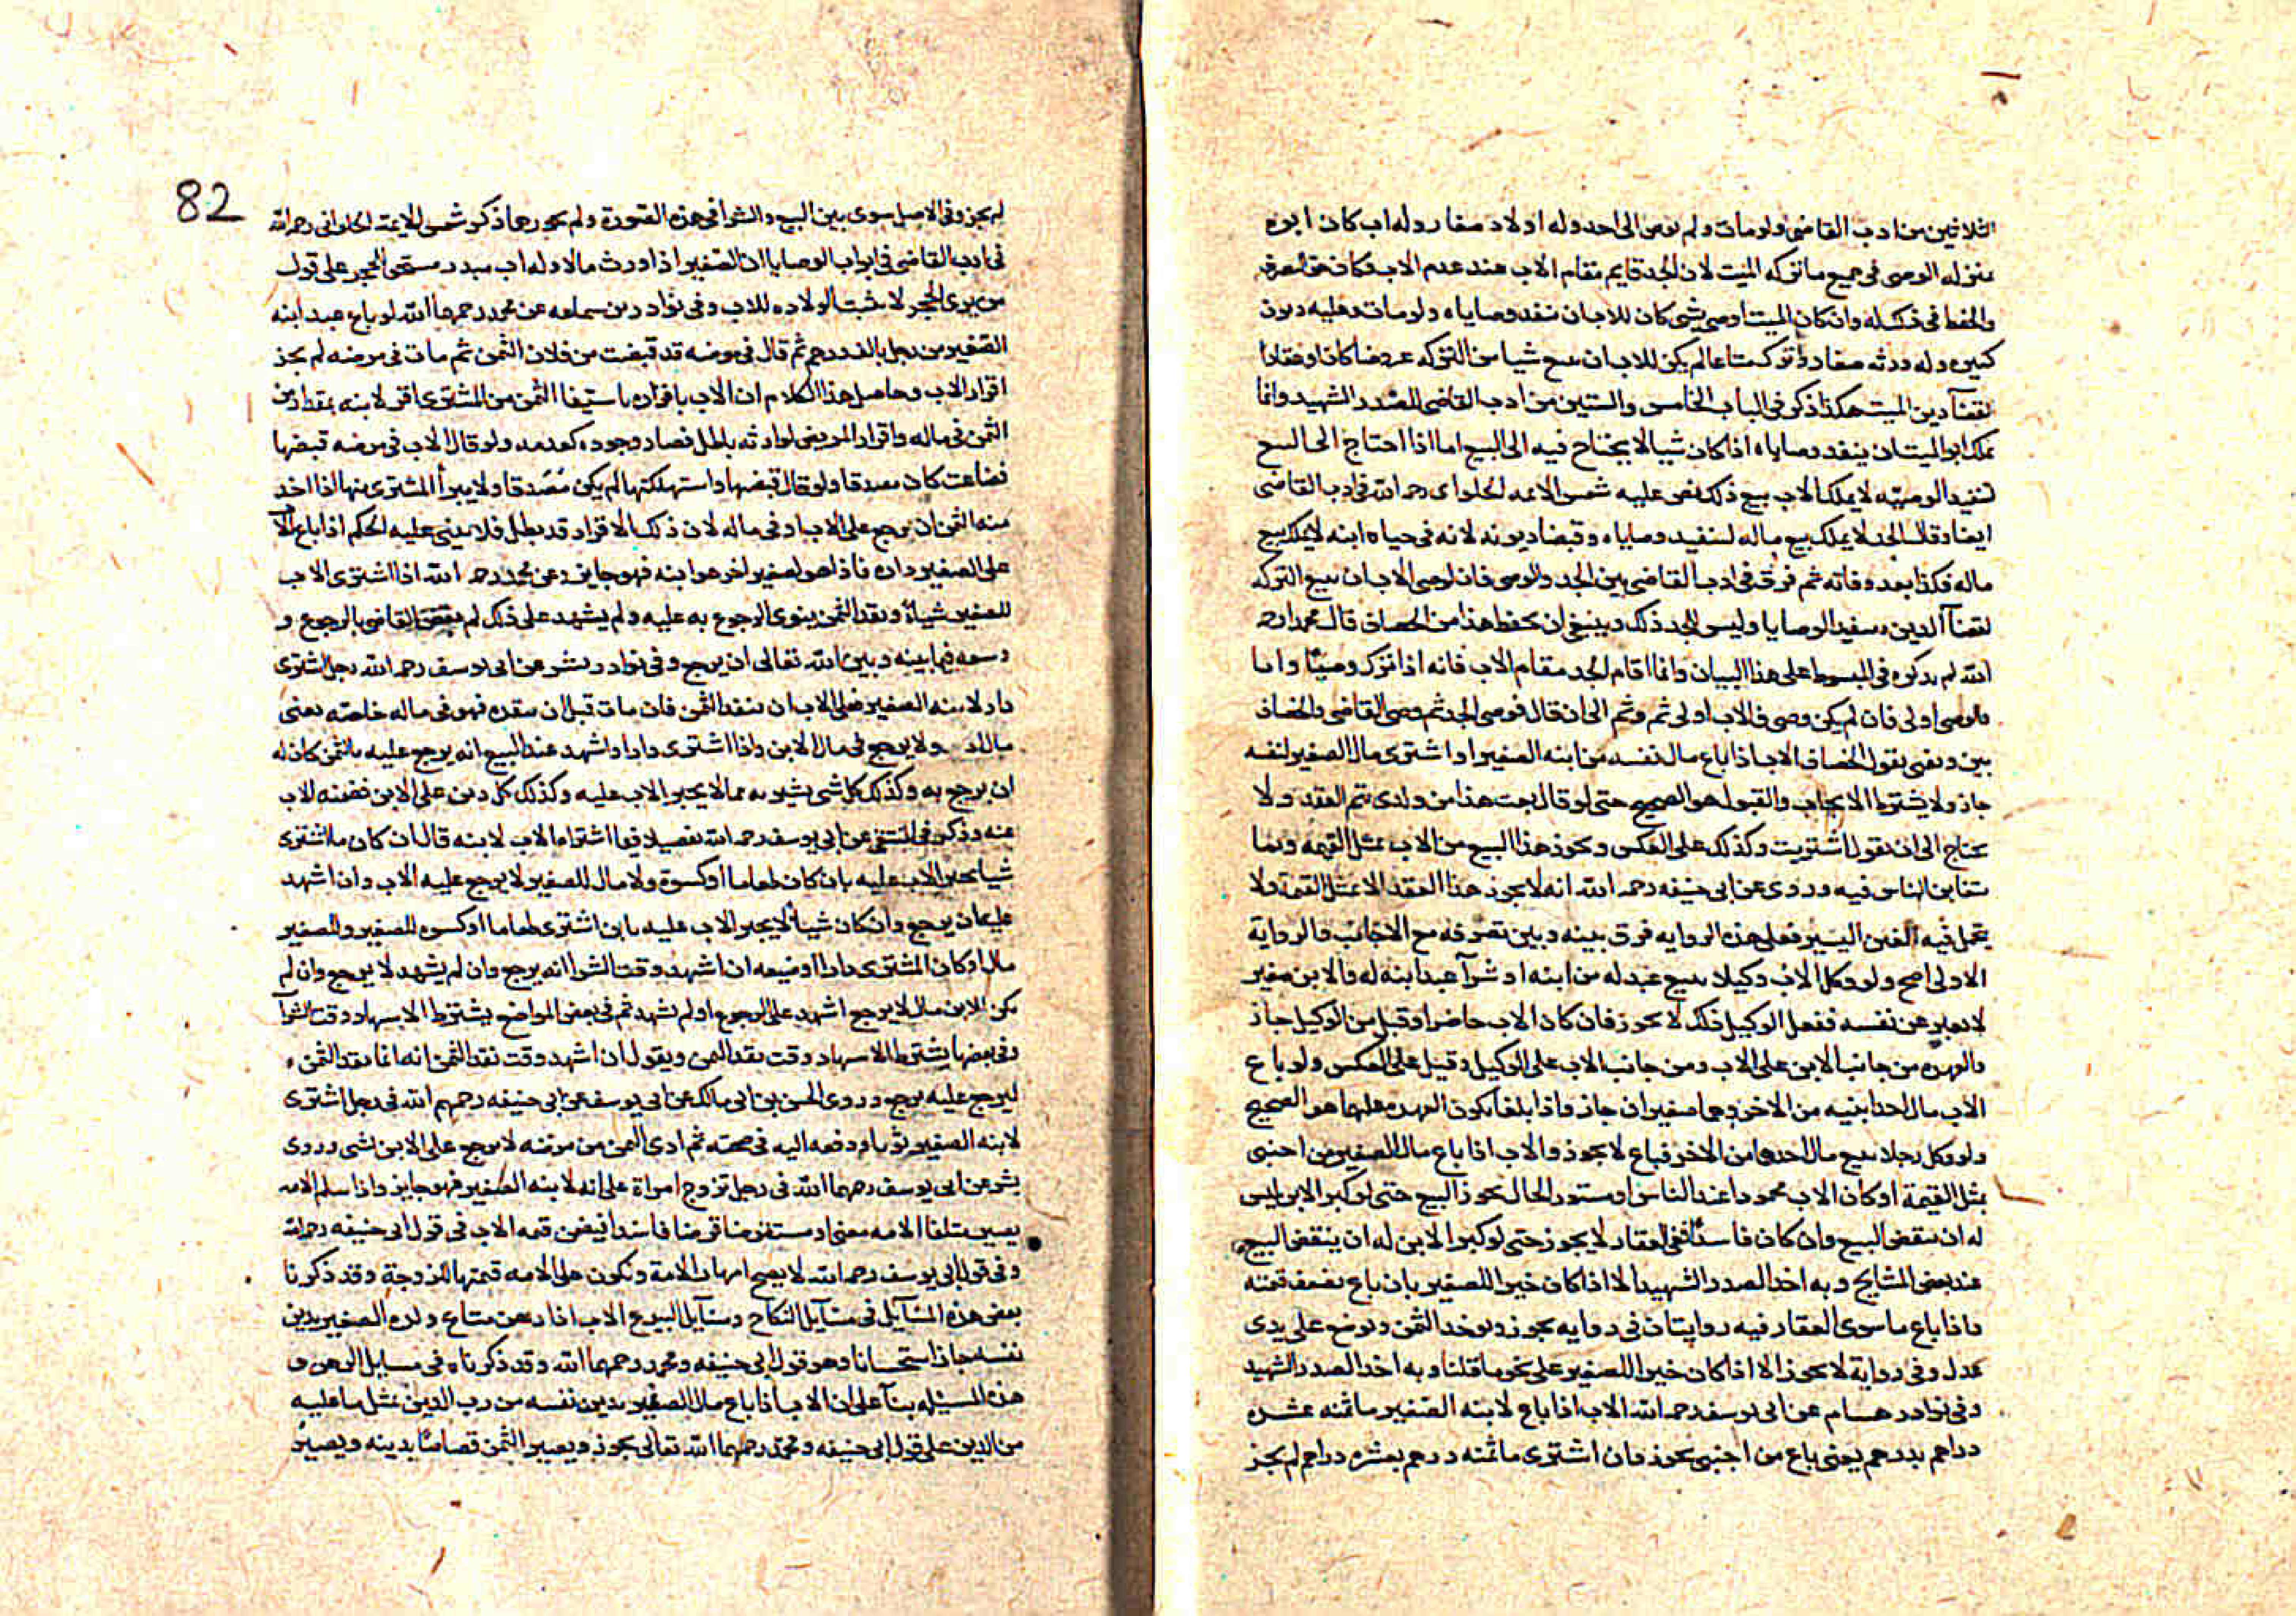 الثلاثين من ادب القاضي ولو مات ولم يوص الى احد وله اولاد صغار وله اب كان ابوه
بمنزله الوصى فى جميع ما تركه الميت لان الجد قايم مقام الاب عند عدم الاب فكان حق التصرف
والحفظ فى ذلك له وان كان الميت اوصى بشى كان للاب ان ينفد وصاياه ولو مات وعليه ديون
كثيره وله ورثه صغار وترك متاعا لم يكن للاب ان يبيع شيا من التركه عروضا كان او عقارا
لقضآ دين الميت هكذا ذكر فى الباب الخامس والستين من ادب القاضى للصدر الشهيد وانما
يملك ابو الميت ان ينفد وصاياه اذا كان شيا لا يحتاج فيه الى البيع اما اذا احتاج الى البيع
لتنفيد الوصيه لا يملك الاب بيع ذلك نص عليه شمس الايمه الحلوانى رحمه الله فى ادب القاضى
ايضا وقال الجد لا يملك بيع ماله لتنفيد وصاياه وقبضا ديونه لانه فى حياه ابنه لا يملك بيع
ماله فكذا بعد وفاته ثم فرق فى ادب القاضى بين الجد والوصى فان لوصى الاب ان يبيع التركه
لقضآ الدين وتنفيد الوصايا وليس للجد ذلك وينبغى ان يحفظ هذا من الخصاف قال محمد رحمه
الله لم يذكره فى المبسوط على هذا البيان وانما اقام الجد مقام الاب فانه اذا ترك وصيًا وابا
فالوصى اولى فان لم يكن وصى فالاب اولى ثم وثم الى ان قال فوصى الجد ثم وصى القاضى والخصاف
بين ونفتى بقول الخصاف الاب اذا باع مال نفسه من ابنه الصغير او اشترى مال الصغير لنفسه
جاز ولا يشترط الايجاب والقبول هو الصحيح حتى لو قال بعت هذا من ولدى تم العقد ولا
يحتاج الى ان يقول اشتريت وكذلك على العكس ويجوز هذا البيع من الاب بمثل القيمه وبما
يتغابن الناس فيه وروى عن ابى حنيفه رحمه الله انه لا يجوز هذا العقد الا بمثل القيمة ولا
يتحمل فيه الغبن اليسير فعلى هذه الروايه فرق بينه وبين تصرفه مع الاجانب والرواية
الاولى اصح ولو وكل الاب وكيلا ببيع عبد له من ابنه او شرآ عبد ابنه له والابن صغير
لا يعبر عن نفسه ففعل الوكيل ذلك لا يجوز فان كان الاب حاضرا وقبل من الوكيل جاز
والعهده من جانب الابن على الاب ومن جانب الاب على الوكيل وقيل على العكس ولو باع
الاب مال احد ابنيه من الاخر وهما صغيران جاز واذا بلغا تكون العهده عليهما هو الصحيح
ولو وكل رجلا ببيع مال احدهما من الاخر فباع لا يجوز والاب اذا باع مال الصغير من اجنبى
بمثل القيمة او كان الاب محمودا عند الناس او مستور الحال يجوز البيع حتى لو كبر الابن ليس
له ان ينقض البيع وان كان فاسقًا ففى العقار لا يجوز حتى لو كبر الابن له ان ينقض البيع
عند بعض المشايخ وبه اخد الصدر الشهيد الا اذا كان خيرا للصغير بان باع بضعف قيمته
واذا باع ما سوى العقار فيه روايتان فى روايه يجوز ويوخد الثمن ويوضع على يدى
عدل وفى رواية لا يجوز الا اذا كان خيرا للصغير على نحو ما قلنا وبه اخد الصدر الشهيد
وفى نوادر هشام عن ابى يوسف رحمه الله الاب اذا باع لابنه الصغير ما ثمنه عشره
دراهم بدرهم يعنى باع من اجنبى يجوز فان اشترى ما ثمنه درهم بعشره دراهم لم يجز
82
لم يجز وفى الاصل سوى بين البيع والشرا فى هذه الصورة ولم يجوزهما ذكر شمس الايمة الحلوانى رحمه الله
فى ادب القاضى فى ابواب الوصايا ان الصغير اذا ورث مالا وله اب مبدر مستحق الحجر على قول
من يرى الحجر لا تثبت الولاده للاب وفى نوادر بن سماعه عن محمد رحمهما الله لو باع عبد ابنه
الصغير من رجل بالف درهم ثم قال فى مرضه قد قبضت من فلان الثمن ثم مات فى مرضه لم يجز
اقرار الاب وحاصل هذا الكلام ان الاب باقراره باستيفا الثمن من المشترى اقر لابنه بمقدار من
الثمن فى ماله واقرار المريض لوارثه باطل فصار وجوده كعدمه ولو قال الاب فى مرضه قبضها
فضاعت كان مصدقا ولو قال قبضها واستهلكتها لم يكن مصدقا ولا يبرأ المشترى منها اذا اخد
منه الثمن ان يرجع على الاب او فى ماله لان ذلك الاقرار قد بطل فلا يبتنى عليه الحكم اذا باع الاب
على الصغير داره فاذا هو لصغير اخر هو ابنه فهو جايز وعن محمد رحمه الله اذا اشترى الاب
للصغير شيأ ونقد الثمن ينوى الرجوع به عليه ولم يشهد على ذلك لم يقض القاضى بالرجوع و
وسعه فيما بينه وبين الله تعالى ان يرجع وفى نوادر بشر عن ابى يوسف رحمه الله رجل اشترى
دار لابنه الصغير فعلى الاب ان ينقد الثمن فان مات قبل ان ينقده فهو فى ماله خاصة يعنى
مال الاب ولا يرجع فى مال الابن واذا اشترى دارا واشهد عند البيع انه يرجع عليه بالثمن كان له
ان يرجع به وكذلك كل شى يشتريه مما لا يجبر الاب عليه وكذلك كل دين على الابن فضمنه الاب
عنه وذكر فى المنتقى عن ابى يوسف رحمه الله تفصيلا فيما اشتراه الاب لابنه قال ان كان ما اشترى
شيا يجبر الاب عليه بان كان طعاما او كسوة ولا مال للصغير لا يرجع عليه الاب وان اشهد
عليه ان يرجع وان كان شيأ لا يجبر الاب عليه بان اشترى طعاما او كسوه للصغير وللصغير
مال او كان المشترى دارا او ضيعه ان اشهد وقت الشرا انه يرجع وان لم يشهد لا يرجع وان لم
يكن للابن مال لا يرجع اشهد على الرجوع او لم يشهد ثم فى بعض المواضع يشترط الاشهاد وقت الشرآ
وفى بعضها يشترط الاشهاد وقت نقد الثمن ويقول ان اشهد وقت نقد الثمن انه انما نقد الثمن
ليرجع عليه يرجع وروى الحسن بن ابى مالك عن ابى يوسف عن ابى حنيفه رحمهم الله فى رجل اشترى
لابنه الصغير ثوبا ودفعه اليه فى صحته ثم ادى الثمن من مرضه لا يرجع على الابن بشى وروى
بشر عن ابى يوسف رحمهما الله فى رجل تزوج امراة على امة لابنه الصغير فهو جايز واذا سلم الامه
يصير متلفا الامه معنى او مستقرضا قرضا فاسدا فيضمن قيمه الاب فى قول ابى حنيفه رحمه الله
وفى قول ابى يوسف رحمه الله لا يصح امهار الامة وتكون على الامه قيمتها للزوجة وقد ذكرنا
بعض هذه المسآيل فى مسآيل النكاح ومسآيل البيوع الاب اذا رهن متاع ولده الصغير بدين
نفسه جاز استحسانا وهو قول ابى حنيفه ومحمد رحمهما الله وقد ذكرناه فى مسايل الرهن و
هذه المسيله بنآ على ان الاب اذا باع مال الصغير بدين نفسه من رب الدين بمثل ما عليه
من الدين على قول ابى حنيفه ومحمد رحمهما الله تعالى يجوز ويصير الثمن قصاصًا بدينه ويصير